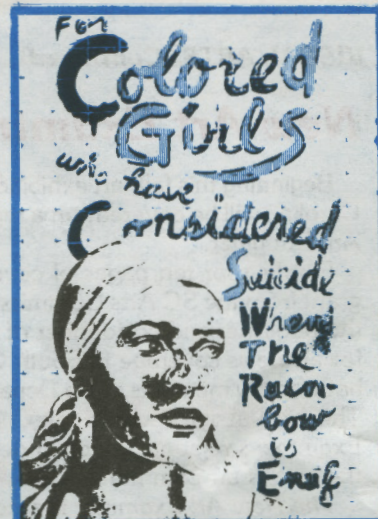 For
Colored
Girls
who have
Considered
Suicide
When
The
Rain-
bow
is
Enuf